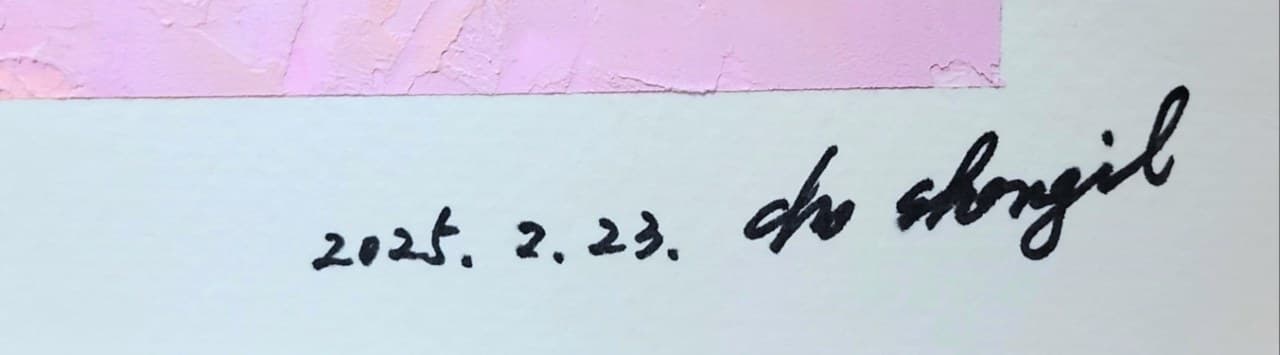 2025. 2. 23. cho shongil